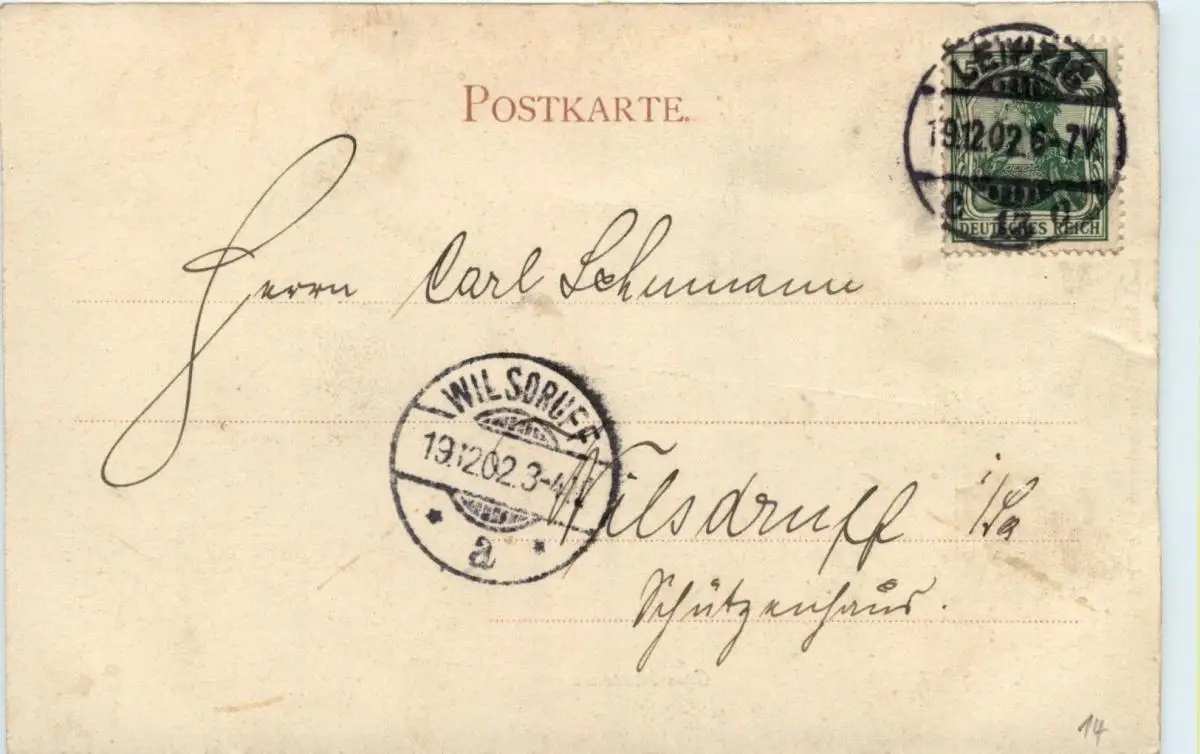 POSTKARTE.
LEIPZIG
19.12.02.6-7V.
13
5
DEUTSCHES REICH
Herrn Carl Schumann
WILSDRUFF
19.12.02.3-4N.
a
Wilsdruff i/Sa
Schützenhaus.
14